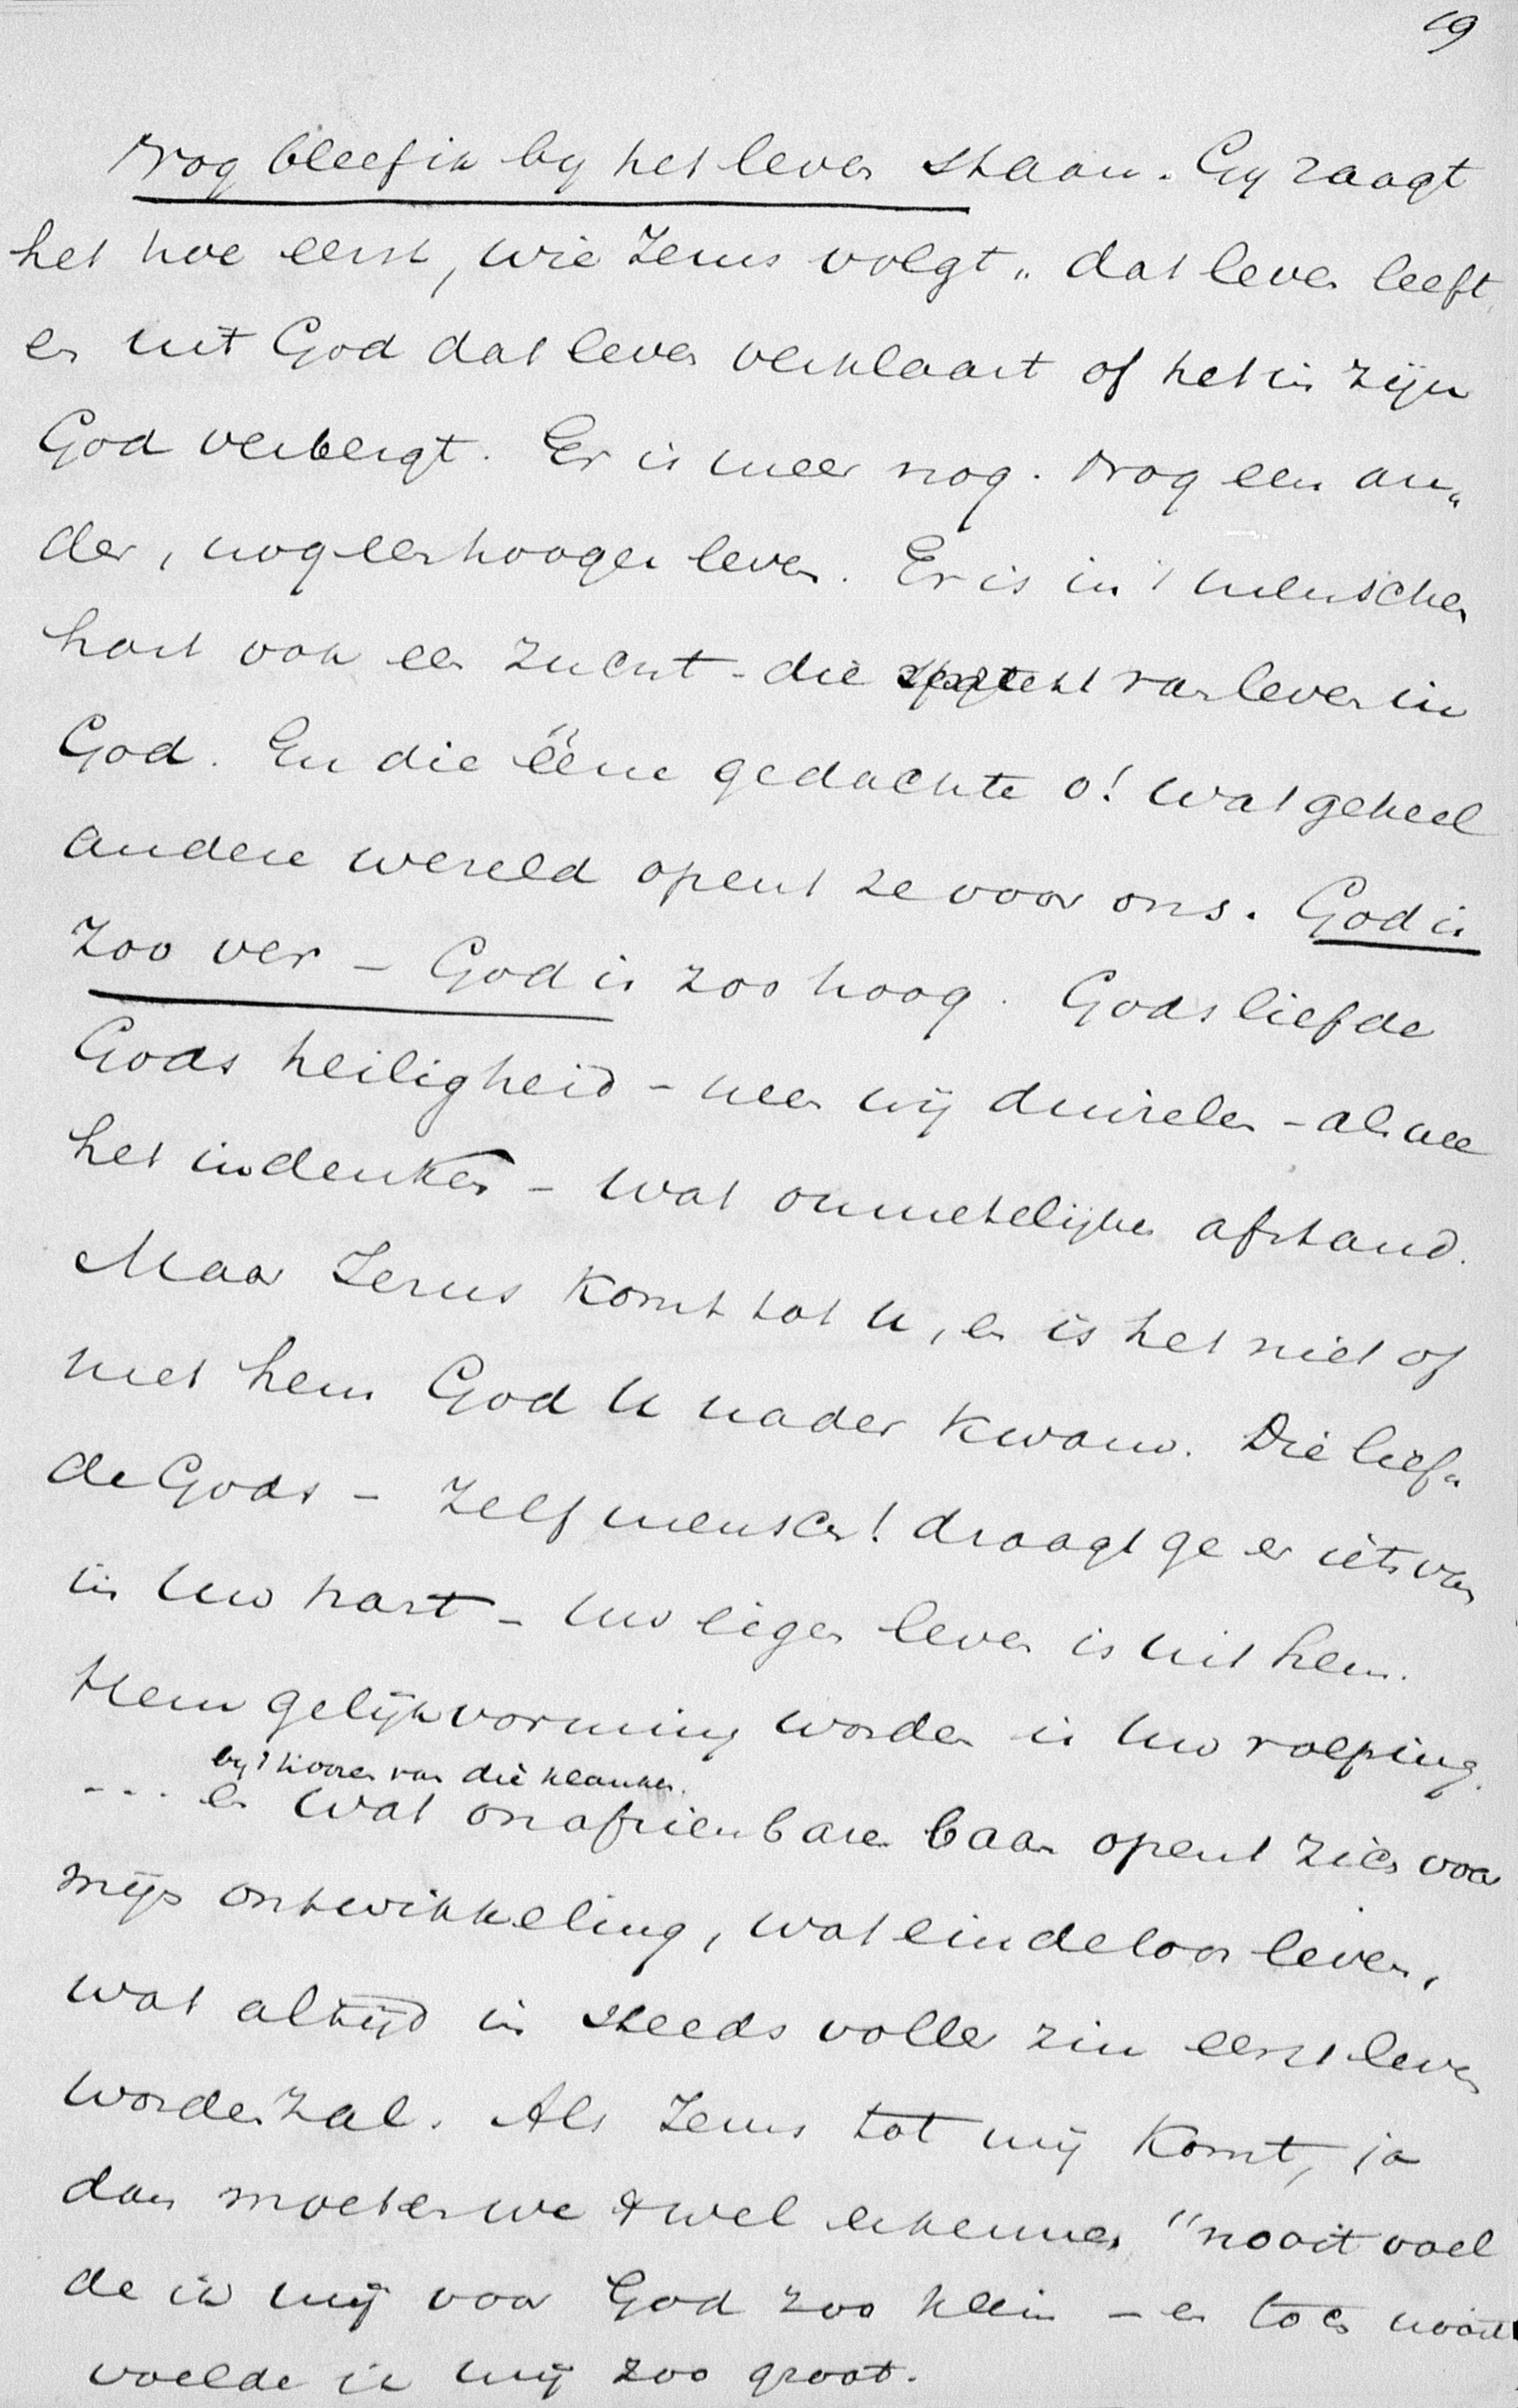 19
Nog bleef ik by het leven staan. Gy zaagt
het hoe eerst, wie Jezus volgt „ dat leven leeft,
en uit God dat leven verklaart of het in zijn
God verbergt. Er is meer nog. Nog een an„
der, nog een hooger leven. Er is in 't menschen
hart ook een zucht - die spreekt van leven in
God. En die ééne gedachte o! wat geheel
andere wereld opent ze voor ons. God is
zoo ver – God is zoo hoog. Gods liefde
Gods heiligheid – neen wij duizelen – als we
het indenken – wat onmetelijke afstand.
Maar Jezus komt tot u, en is het niet of
met hem God U nader kwam. Die lief„
de Gods – zelf mensch! draagt ge er iets van
in Uw hart – Uw eigen leven is uit hem.
Hem gelijkvormig worden is Uw roeping.
by 't hooren van die klanken.
--- en wat onafzienbare baan opent zich voor
mijn ontwikkeling, wat eindeloos leven,
wat altijd in steeds voller zin eerst leven
worden zal. Als Jezus tot mij komt, ja
dan moeten we 't wel erkennen "nooit voel
de ik mij voor God zoo klein – en toch nooit
voelde ik mij zoo groot.